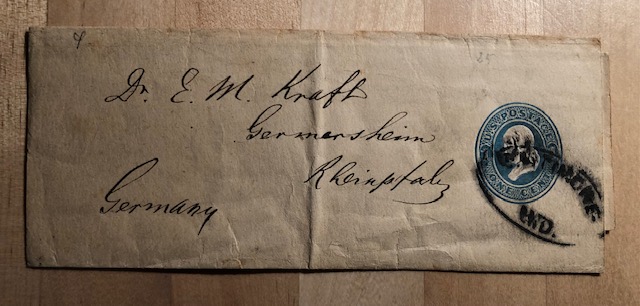 Dr. E. M. Kraft
Germersheim
Rheinpfalz
Germany
U.S. POSTAGE
ONE CENT
IND.
25